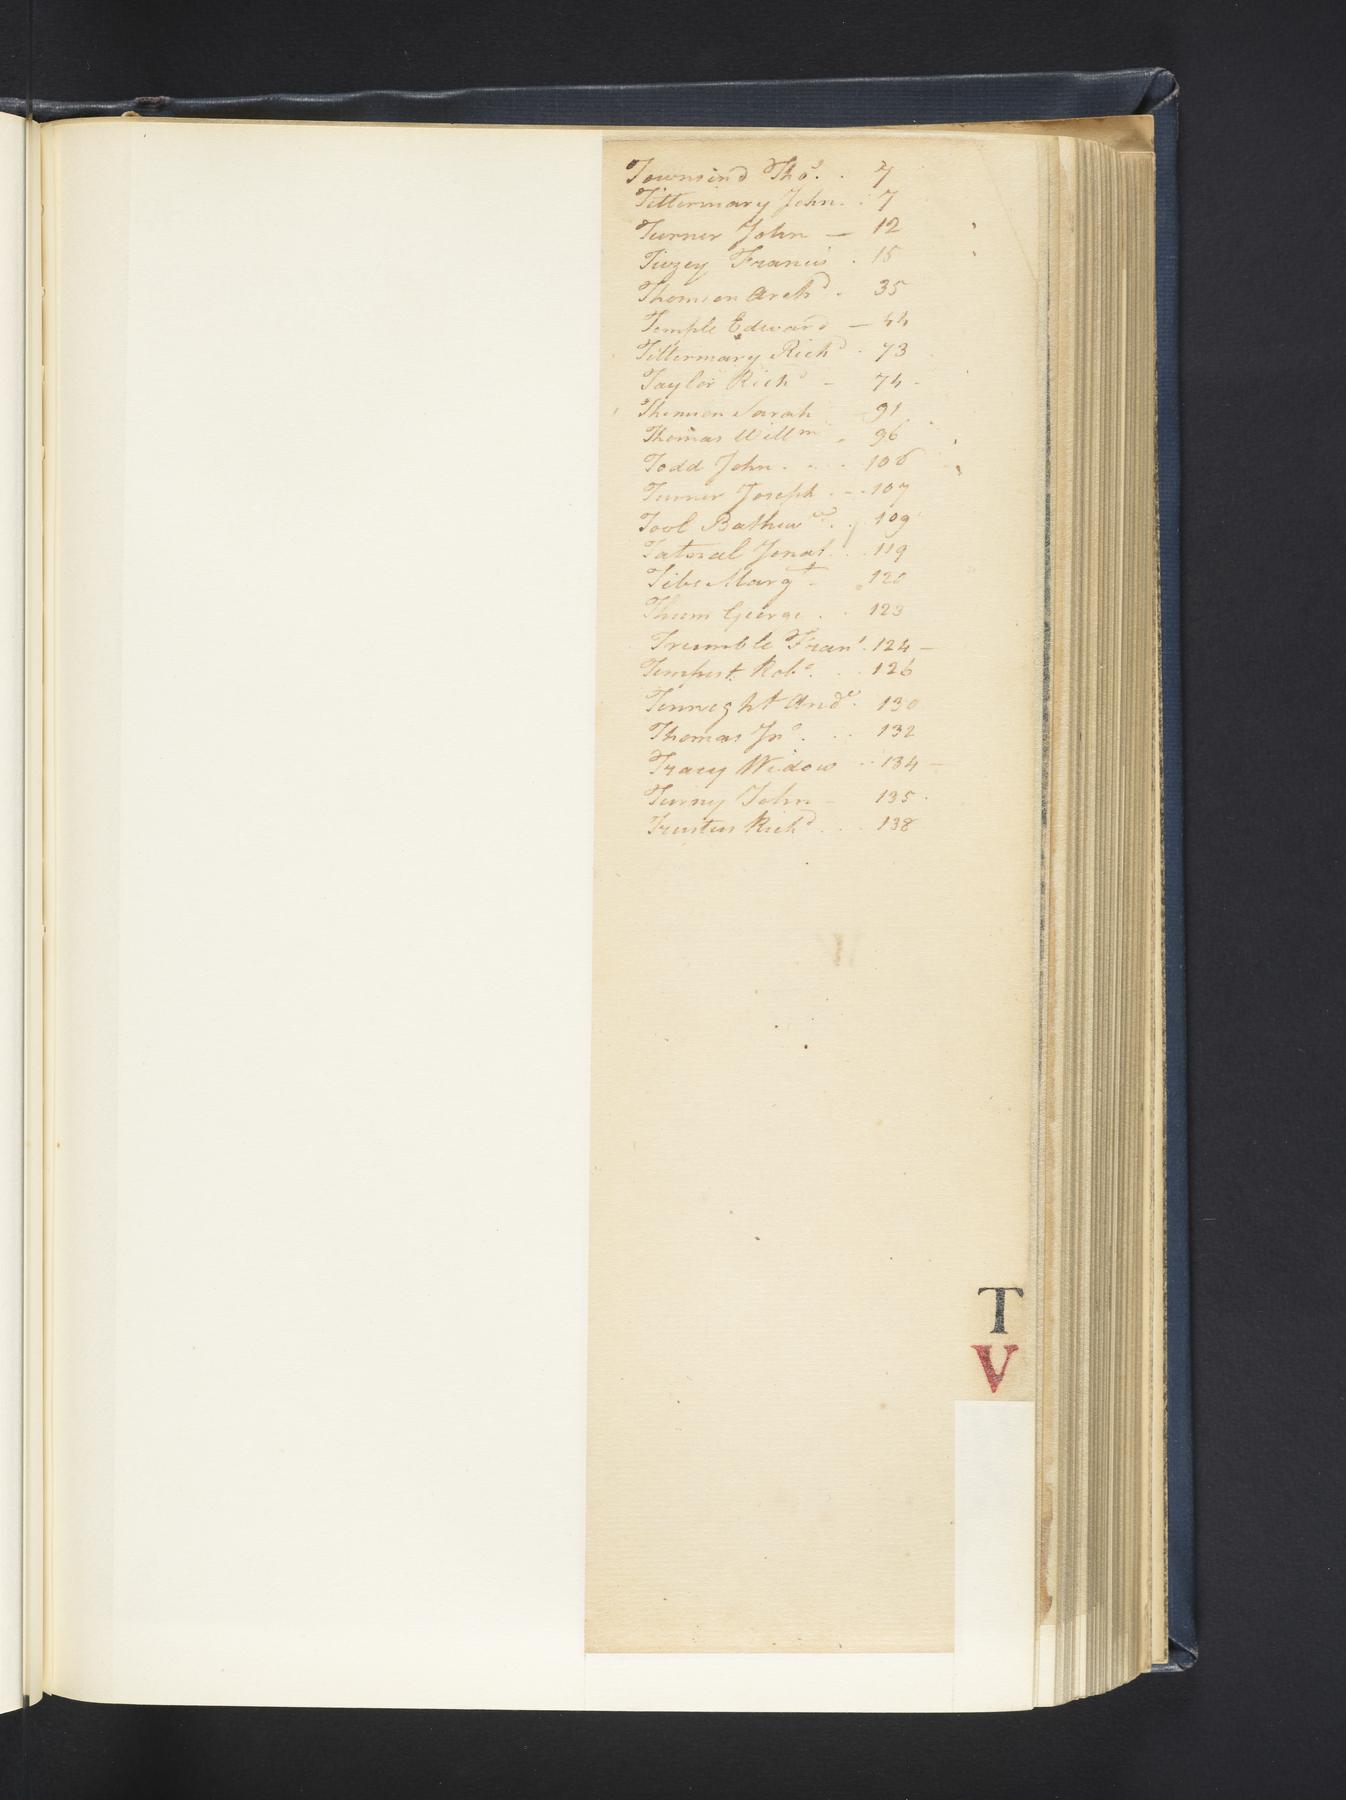 Townsend Tho.s . . 7
Tittermary John . : 7
Turner John — 12
Tivzey Francis . 15
Thomson Arch.d . 35
Temple Edward — 44
Tittermary Rich.d . 73
Taylor Rich.d - 74 -
Thomson Sarah - 91
Thomas Will.m . 96
Todd John . . . . 106
Turner Joseph . - . 107
Tool Bathew . . 109
Tatnal Jonat. . . 119
Tibs Marg.t - 120
Thum George . . 123
Trumble Fran.s . 124 —
Tempest Rob.t . . . 126
Tenneght And.w . 130
Thomas Jn.o . . . 132
Tracy Widow . . 134 —
Turny John - 135 .
Trustus Rich.d . . . 138
T
V